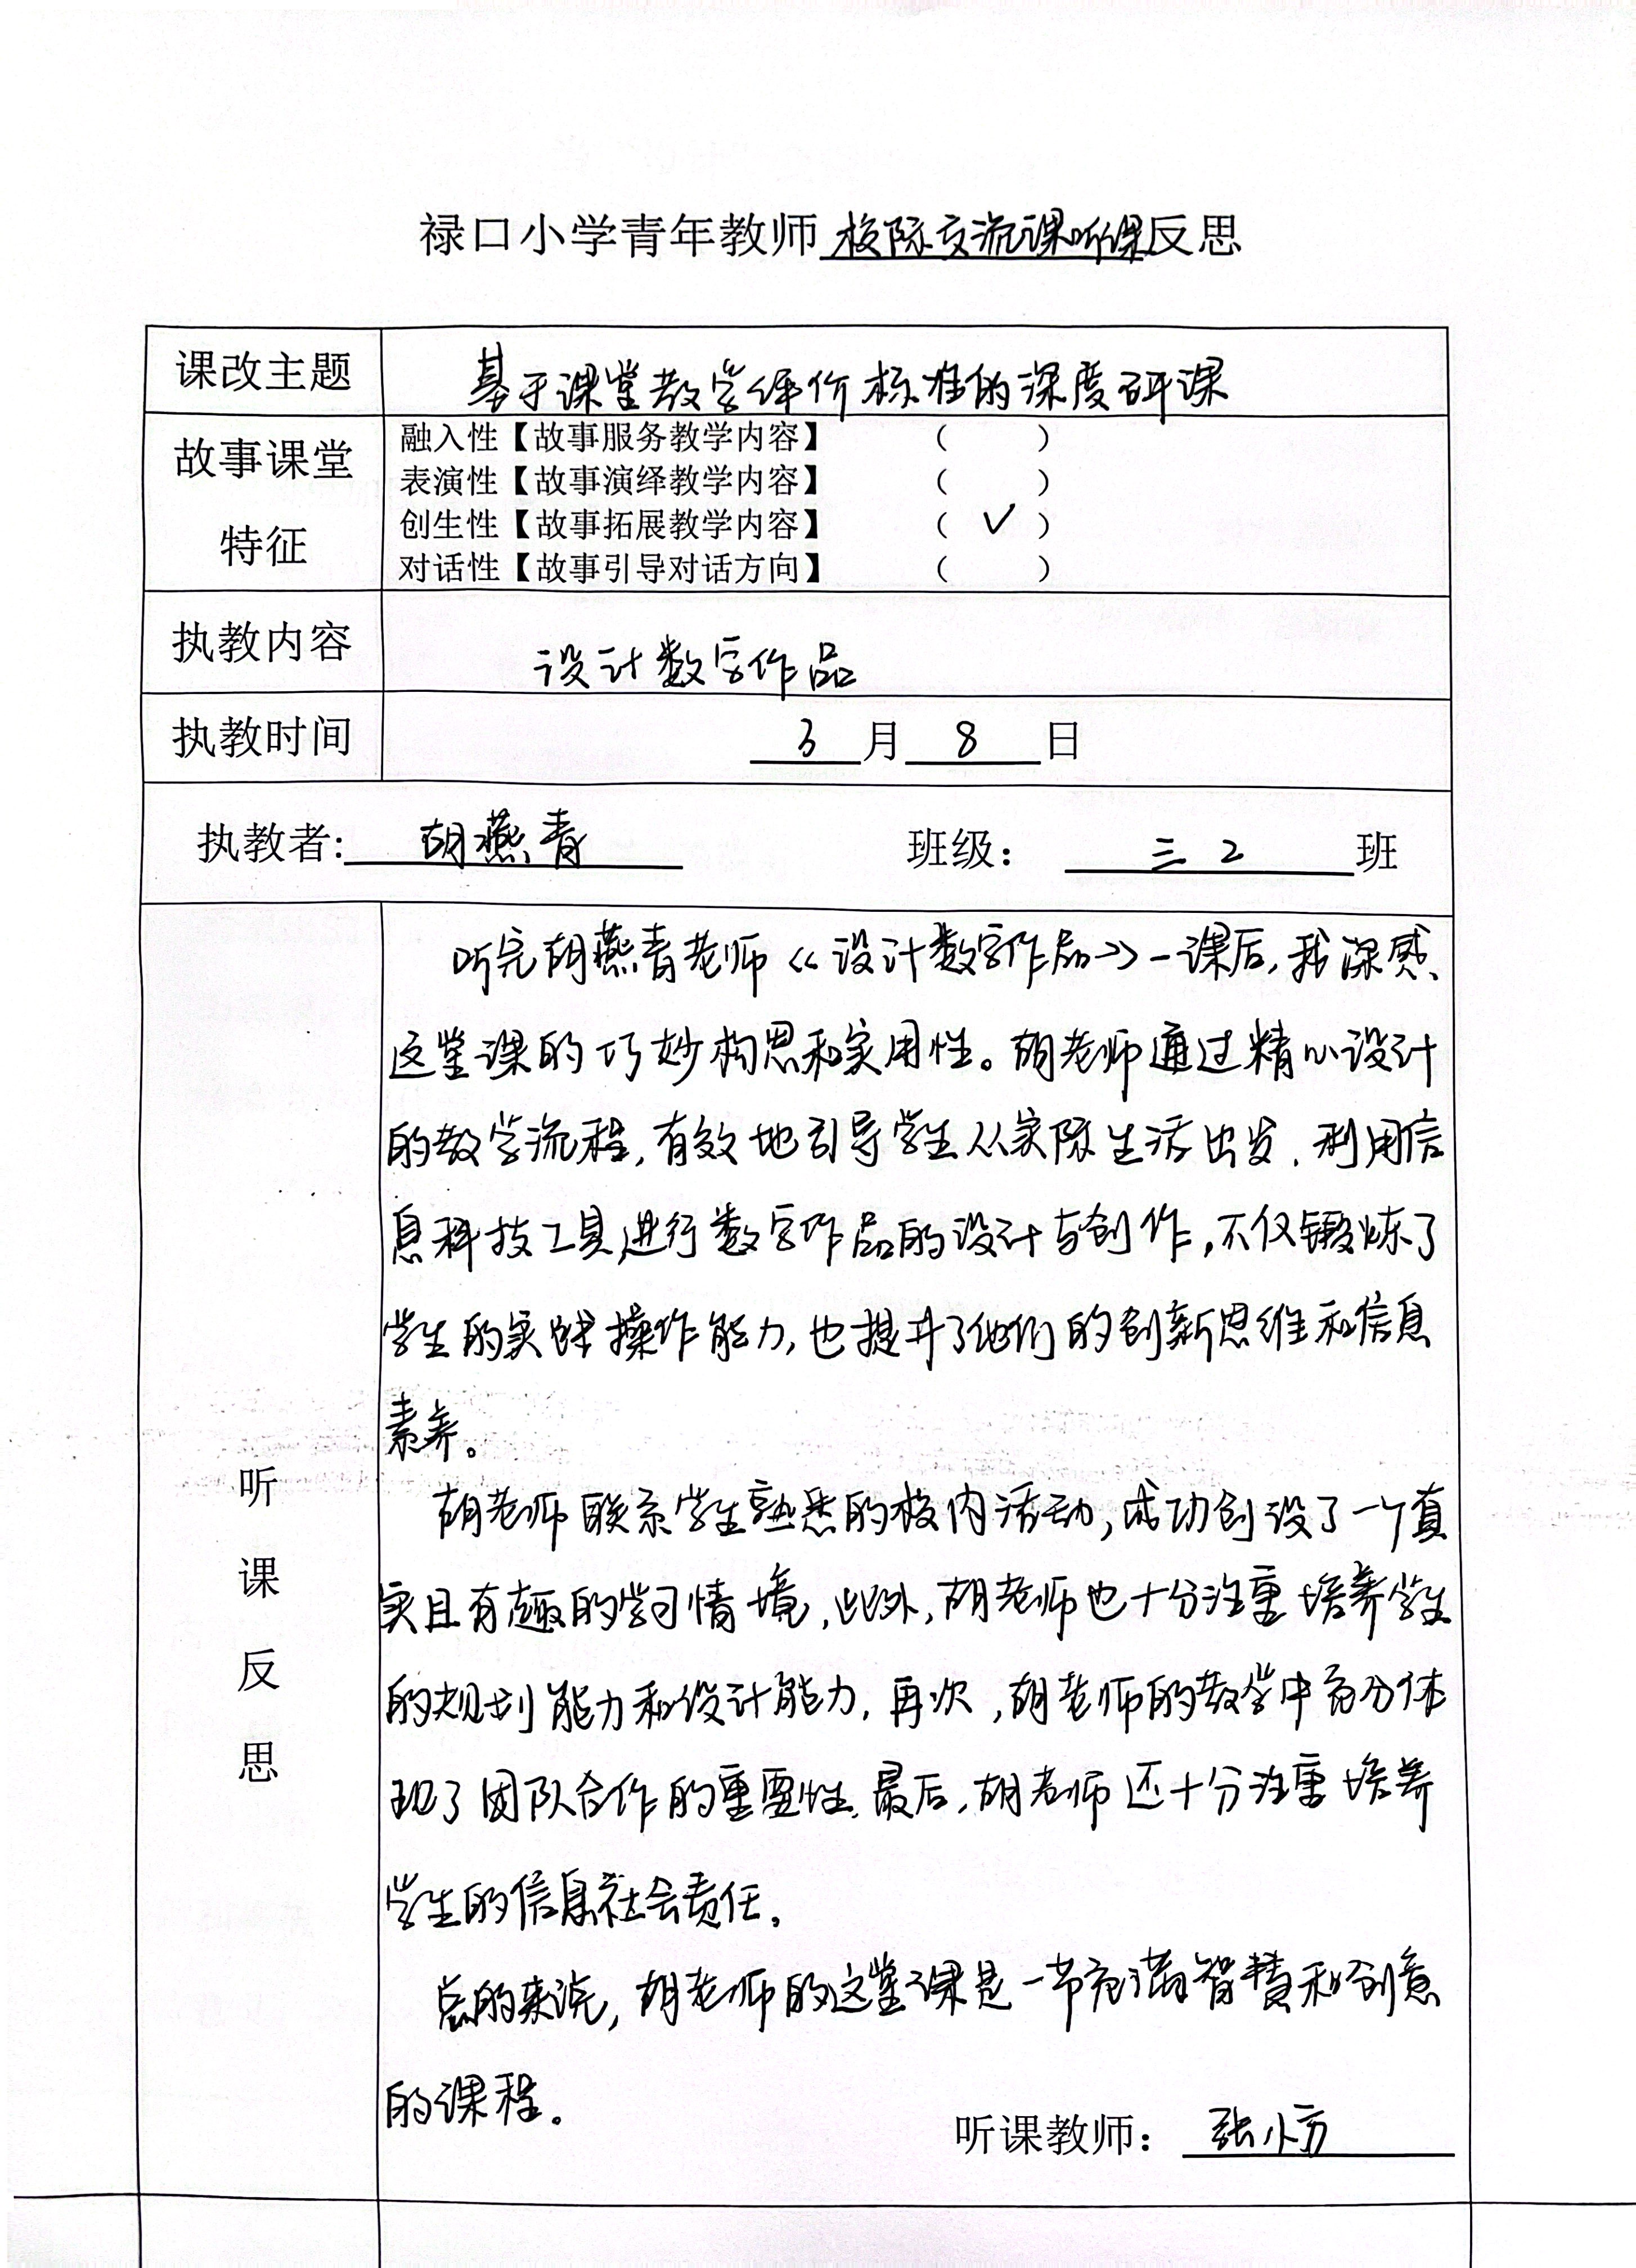 禄口小学青年教师 校际交流课听课反思
课改主题 基于课堂教学评价标准的深度研课
故事课堂特征
融入性【故事服务教学内容】 （ ）
表演性【故事演绎教学内容】 （ ）
创生性【故事拓展教学内容】 （ ✓ ）
对话性【故事引导对话方向】 （ ）
执教内容 设计数字作品
执教时间 3 月 8 日
执教者: 胡燕青 班级： 三2 班
听课反思
听完胡燕青老师《设计数字作品》一课后，我深感
这堂课的巧妙构思和实用性。胡老师通过精心设计
的教学流程，有效地引导学生从实际生活出发，利用信
息科技工具进行数字作品的设计与创作，不仅锻炼了
学生的实践操作能力，也提升了他们的创新思维和信息
素养。
胡老师联系学生熟悉的校内活动，成功创设了一个真
实且有趣的学习情境，此外，胡老师也十分注重培养学生
的规划能力和设计能力，再次，胡老师的教学中充分体
现了团队合作的重要性，最后，胡老师还十分注重培养
学生的信息社会责任。
总的来说，胡老师的这堂课是一节充满智慧和创意
的课程。
听课教师： 张小方